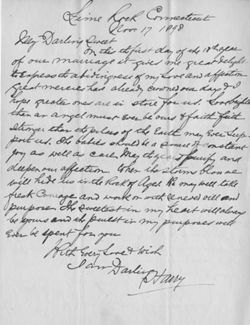 Lime Rock Connecticut
Nov 17 1898
My Darling Sweet
On this the first day of the 13th year
of our marriage it gives me great delight
to express the abidingness of my love and affection
Great mercies has already crowned our days & I
hope greater ones are in store for us. Love
than an angel must ever be ours & faith
stronger than the pulse of the Earth may ever Supp
port us. The babies should be a source of constant
joy as well as care. May they purify and
deepen our affection. When the storms blow we
will hide us in the Rock of Ages. We may well take
fresh Courage and work on with renewed will and
purpose. The sweetest in my heart will always
be yours and the purest in my purposes will
Ever be spent for you
With Every Love & Wish
I am Darling
Harry